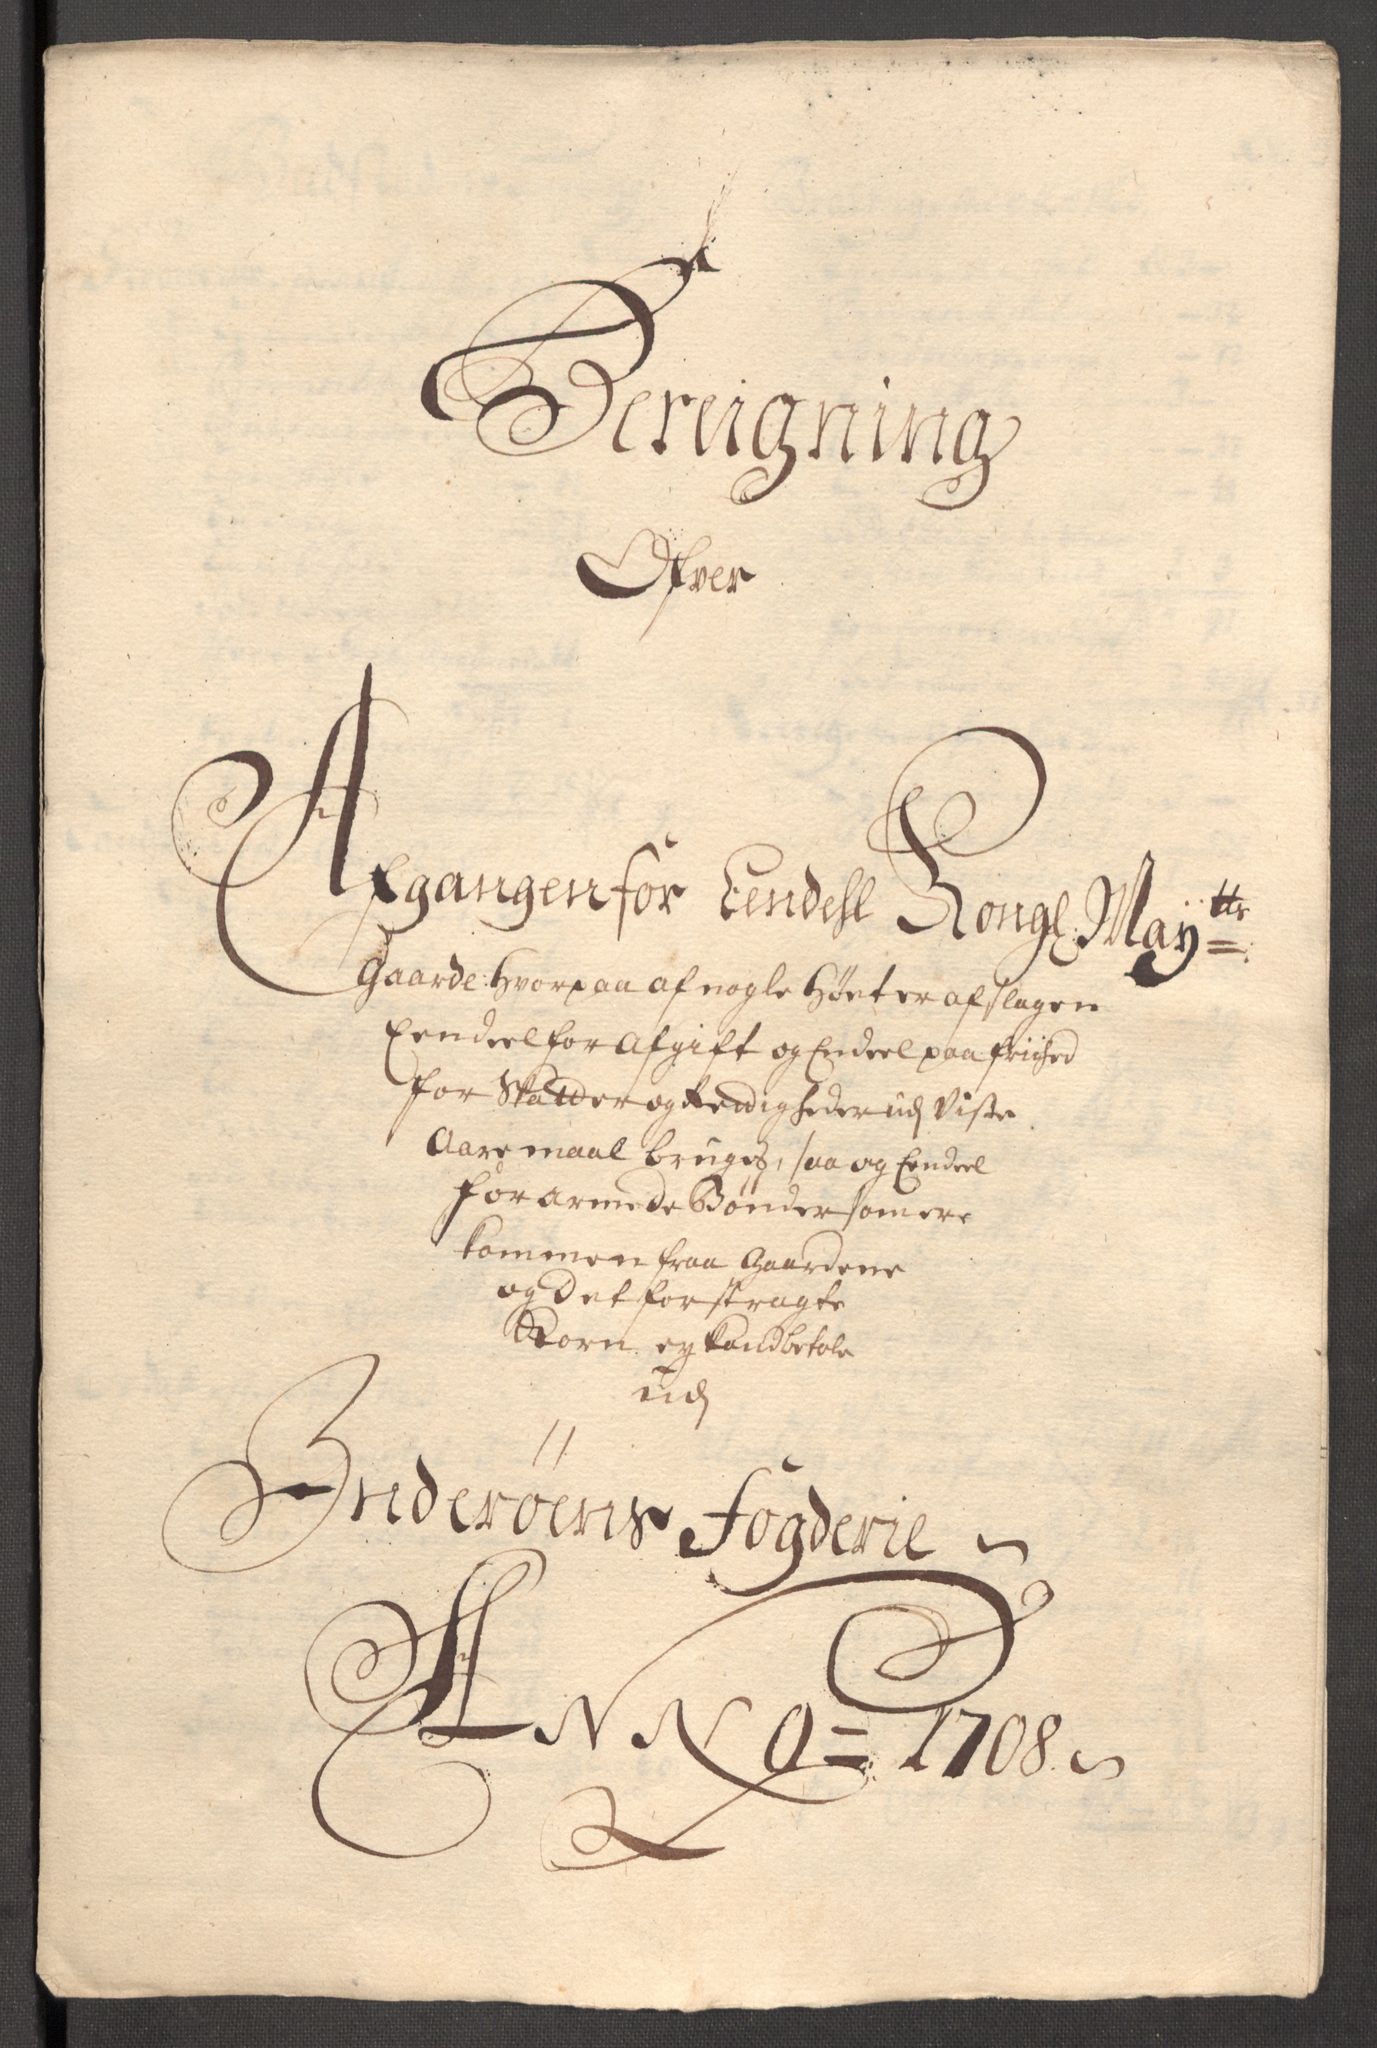 Bereigning
Ofver
Afgangen for Eendehl Kongl: Mayᵗᵗˢ:
Gaarde: hvorpaa af nogle Høet er afslagen
Eendeel for afgift og Endeel paa friihed
for Skatter og Rettigheder udj Visse
Aare maal bruges, saa og Eendeel
forarmede Bønder som ere
kommen fraa Gaardene
og det forstragte
Korn ey kand betale
udj
Inderøens fogderie
ANNO = 1708.